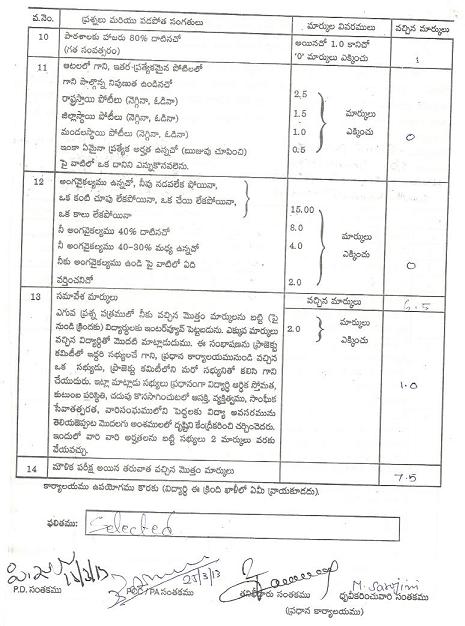 వ.నెం. ప్రశ్నలు మరియు పడపోత సంగతులు మార్కుల వివరములు వచ్చిన మార్కులు
10 పాఠశాలకు హాజరు 80% దాటినచో అయినదో 1.0 కానిచో
(గత సంవత్సరం) '0' మార్కులు ఎక్కించు 1
11 ఆటలలో గాని, ఇతర ప్రత్యేకమైన పోటీలలో
గాని పాల్గొన్న నిపుణత ఉండినచో
రాష్ట్రస్థాయి పోటీలు (నెగ్గినా, ఓడినా) 2.5
జిల్లాస్థాయి పోటీలు (నెగ్గినా, ఓడినా) 1.5 మార్కులు
మండలస్థాయి పోటీలు (నెగ్గినా, ఓడినా) 1.0 ఎక్కించు 0
ఇంకా ఏమైనా ప్రత్యేక అర్హత ఉన్నచో (ఋజువు చూపించి) 0.5
పై వాటిలో ఒక దానిని ఎన్నుకొనవలెను.
12 అంగవైకల్యము ఉన్నచో, నీవు నడవలేక పోయినా,
ఒక కంటి చూపు లేకపోయినా, ఒక చేయి లేకపోయినా,
ఒక కాలు లేకపోయినా 15.00
నీ అంగవైకల్యము 40% దాటినచో 8.0 మార్కులు
నీ అంగవైకల్యము 40-30% మధ్య ఉన్నచో 4.0 ఎక్కించు
నీకు అంగవైకల్యము ఉండి పై వాటిలో ఏది 0
వర్తించనిచో 2.0
13 సమావేశ మార్కులు వచ్చిన మార్కులు 6.5
ఎగువ ప్రశ్న పత్రములో నీకు వచ్చిన మొత్తం మార్కులను బట్టి (పై
నుండి క్రిందకు) విద్యార్థులకు ఇంటర్వ్యూవ్ పెట్టబడును. ఎక్కువ మార్కులు 2.0 మార్కులు ఎక్కించు
వచ్చిన విద్యార్థితో మొదటి మాట్లాడుదుము. ఈ సంభాషణను ప్రాజెక్టు
కమిటీలో ఇద్దరి సభ్యులచే గాని, ప్రధాన కార్యాలయమునుండి వచ్చిన
ఒక సభ్యుడు, ప్రాజెక్టు కమిటీలోని మరో సభ్యునితో కలిసి గాని 1.0
చేయుదురు. ఇట్లా మాట్లాడు సభ్యులు ప్రధానంగా విద్యార్థి ఆర్థిక స్తోమత,
కుటుంబ పరిస్థితి, చదువు కొనసాగించుటలో ఆసక్తి, వ్యక్తిత్వము, సాంఘిక
సేవాతత్పరత, వారిసంఘములోని పెద్దలకు విద్యా అవసరమును
తెలియజెప్పుట మొదలగు అంశములలో దృష్టిని కేంద్రీకరించి చర్చించెదరు.
ఇందులో వారి వారి అర్హతలను బట్టి సభ్యులు 2 మార్కులు వరకు
వేయవచ్చు.
14 మౌఖిక పరీక్ష అయిన తరువాత వచ్చిన మొత్తం మార్కులు 7.5
కార్యాలయము ఉపయోగము కొరకు (విద్యార్థి ఈ క్రింది ఖాళీలో ఏమీ వ్రాయకూడదు).
ఫలితము: Selected
23/3/13 M. Sarojini
P.D. సంతకము PDC / PA సంతకము తనిఖీదారు సంతకము ధృవీకరించువారి సంతకము
(ప్రధాన కార్యాలయము)